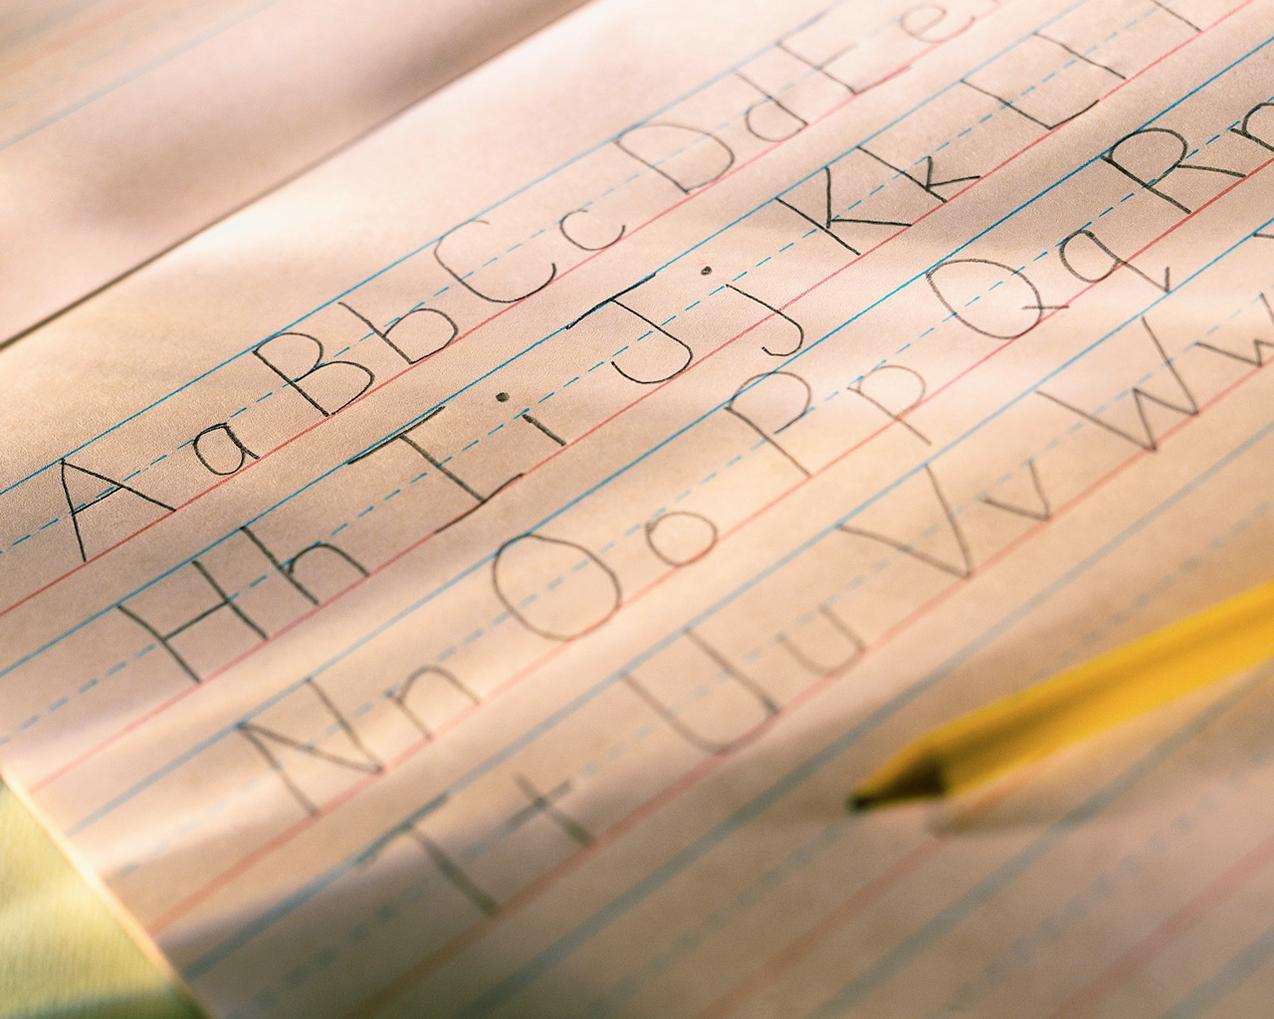 Aa Bb Cc Dd Ee
Hh Ii Jj Kk L
Nn Oo Pp Qq R
Tt Uu Vv Ww